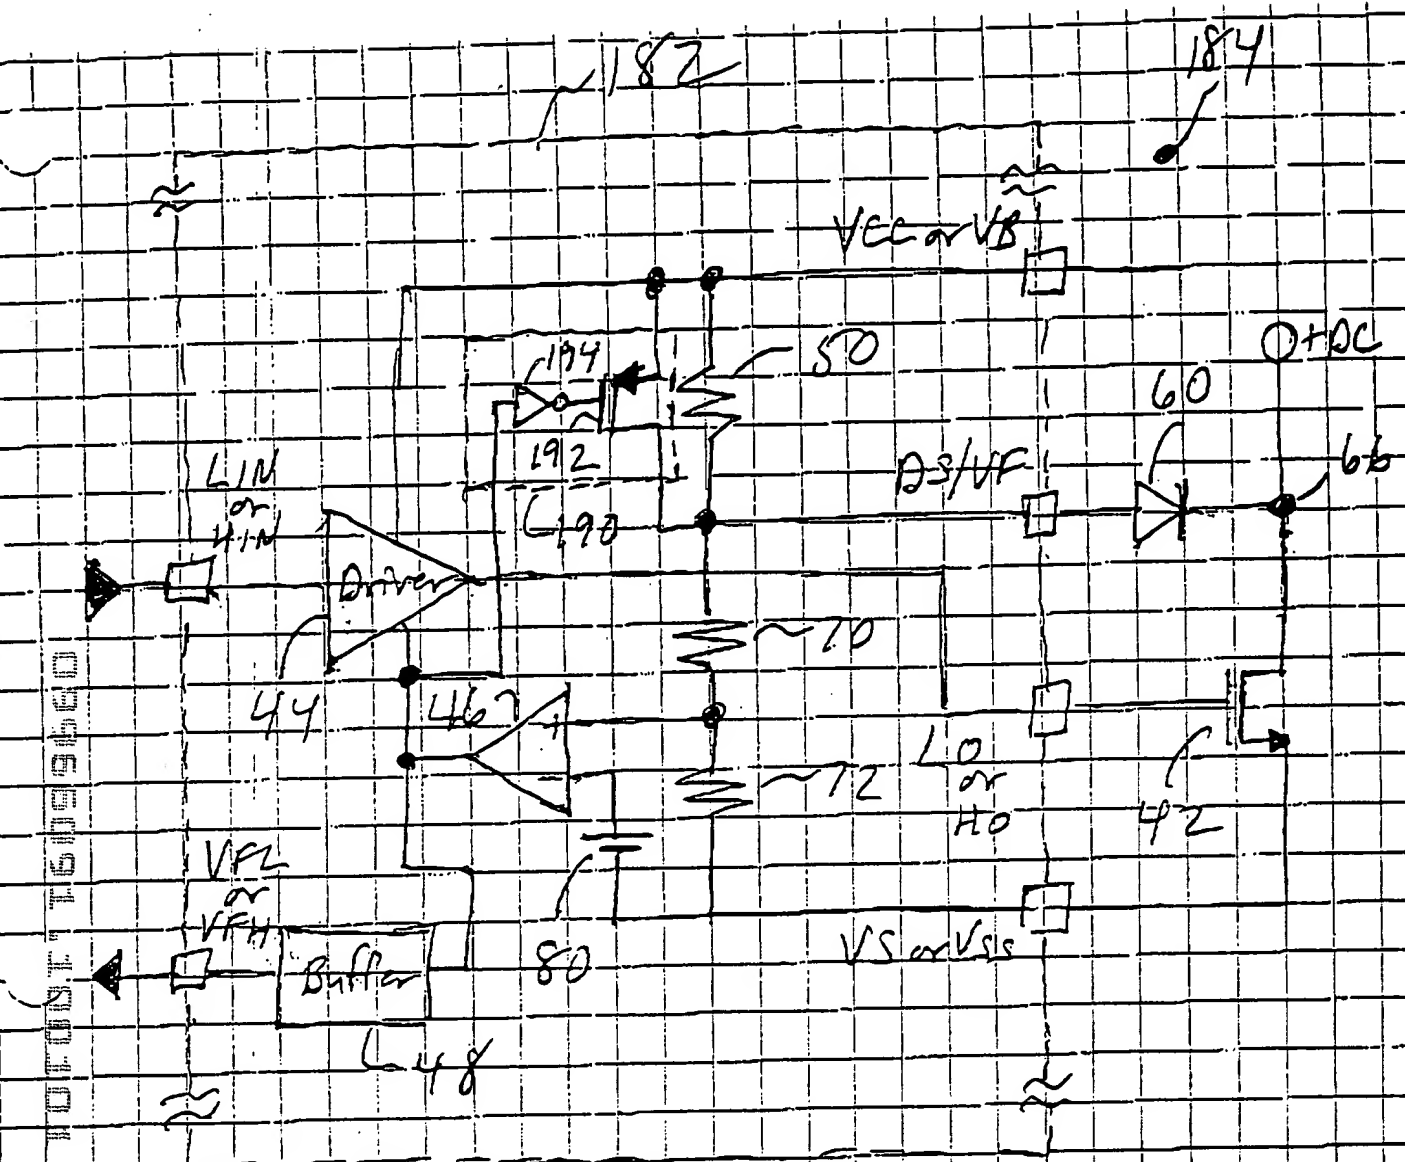 182
184
VCC or VB
+DC
194
50
60
192
DS/VF
66
LIN
or
HIN
190
Driver
70
44
46
LO
or
HO
72
42
VFL
or
VFH
80
VS or VSS
Buffer
48